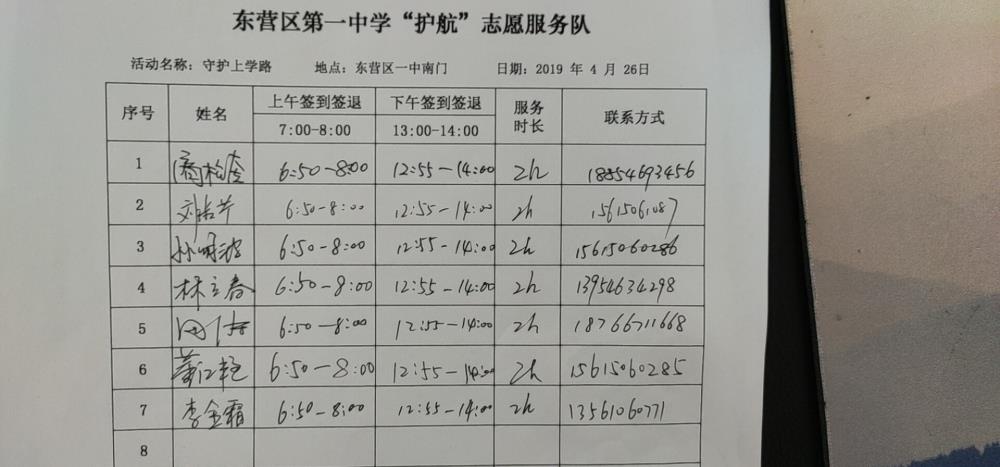 东营区第一中学“护航”志愿服务队
活动名称：守护上学路 地点：东营区一中南门 日期：2019 年 4 月 26日
序号 姓名 上午签到签退 下午签到签退 服务时长 联系方式
7:00-8:00 13:00-14:00
1 6:50-8:00 12:55-14:00 2h 18554693456
2 6:50-8:00 12:55-14:00 2h 1561506087
3 孙明波 6:50-8:00 12:55-14:00 2h 15615060286
4 林立春 6:50-8:00 12:55-14:00 2h 13954634298
5 6:50-8:00 12:55-14:00 2h 18766711668
6 6:50-8:00 12:55-14:00 2h 15615060285
7 李金霜 6:50-8:00 12:55-14:00 2h 13561060771
8